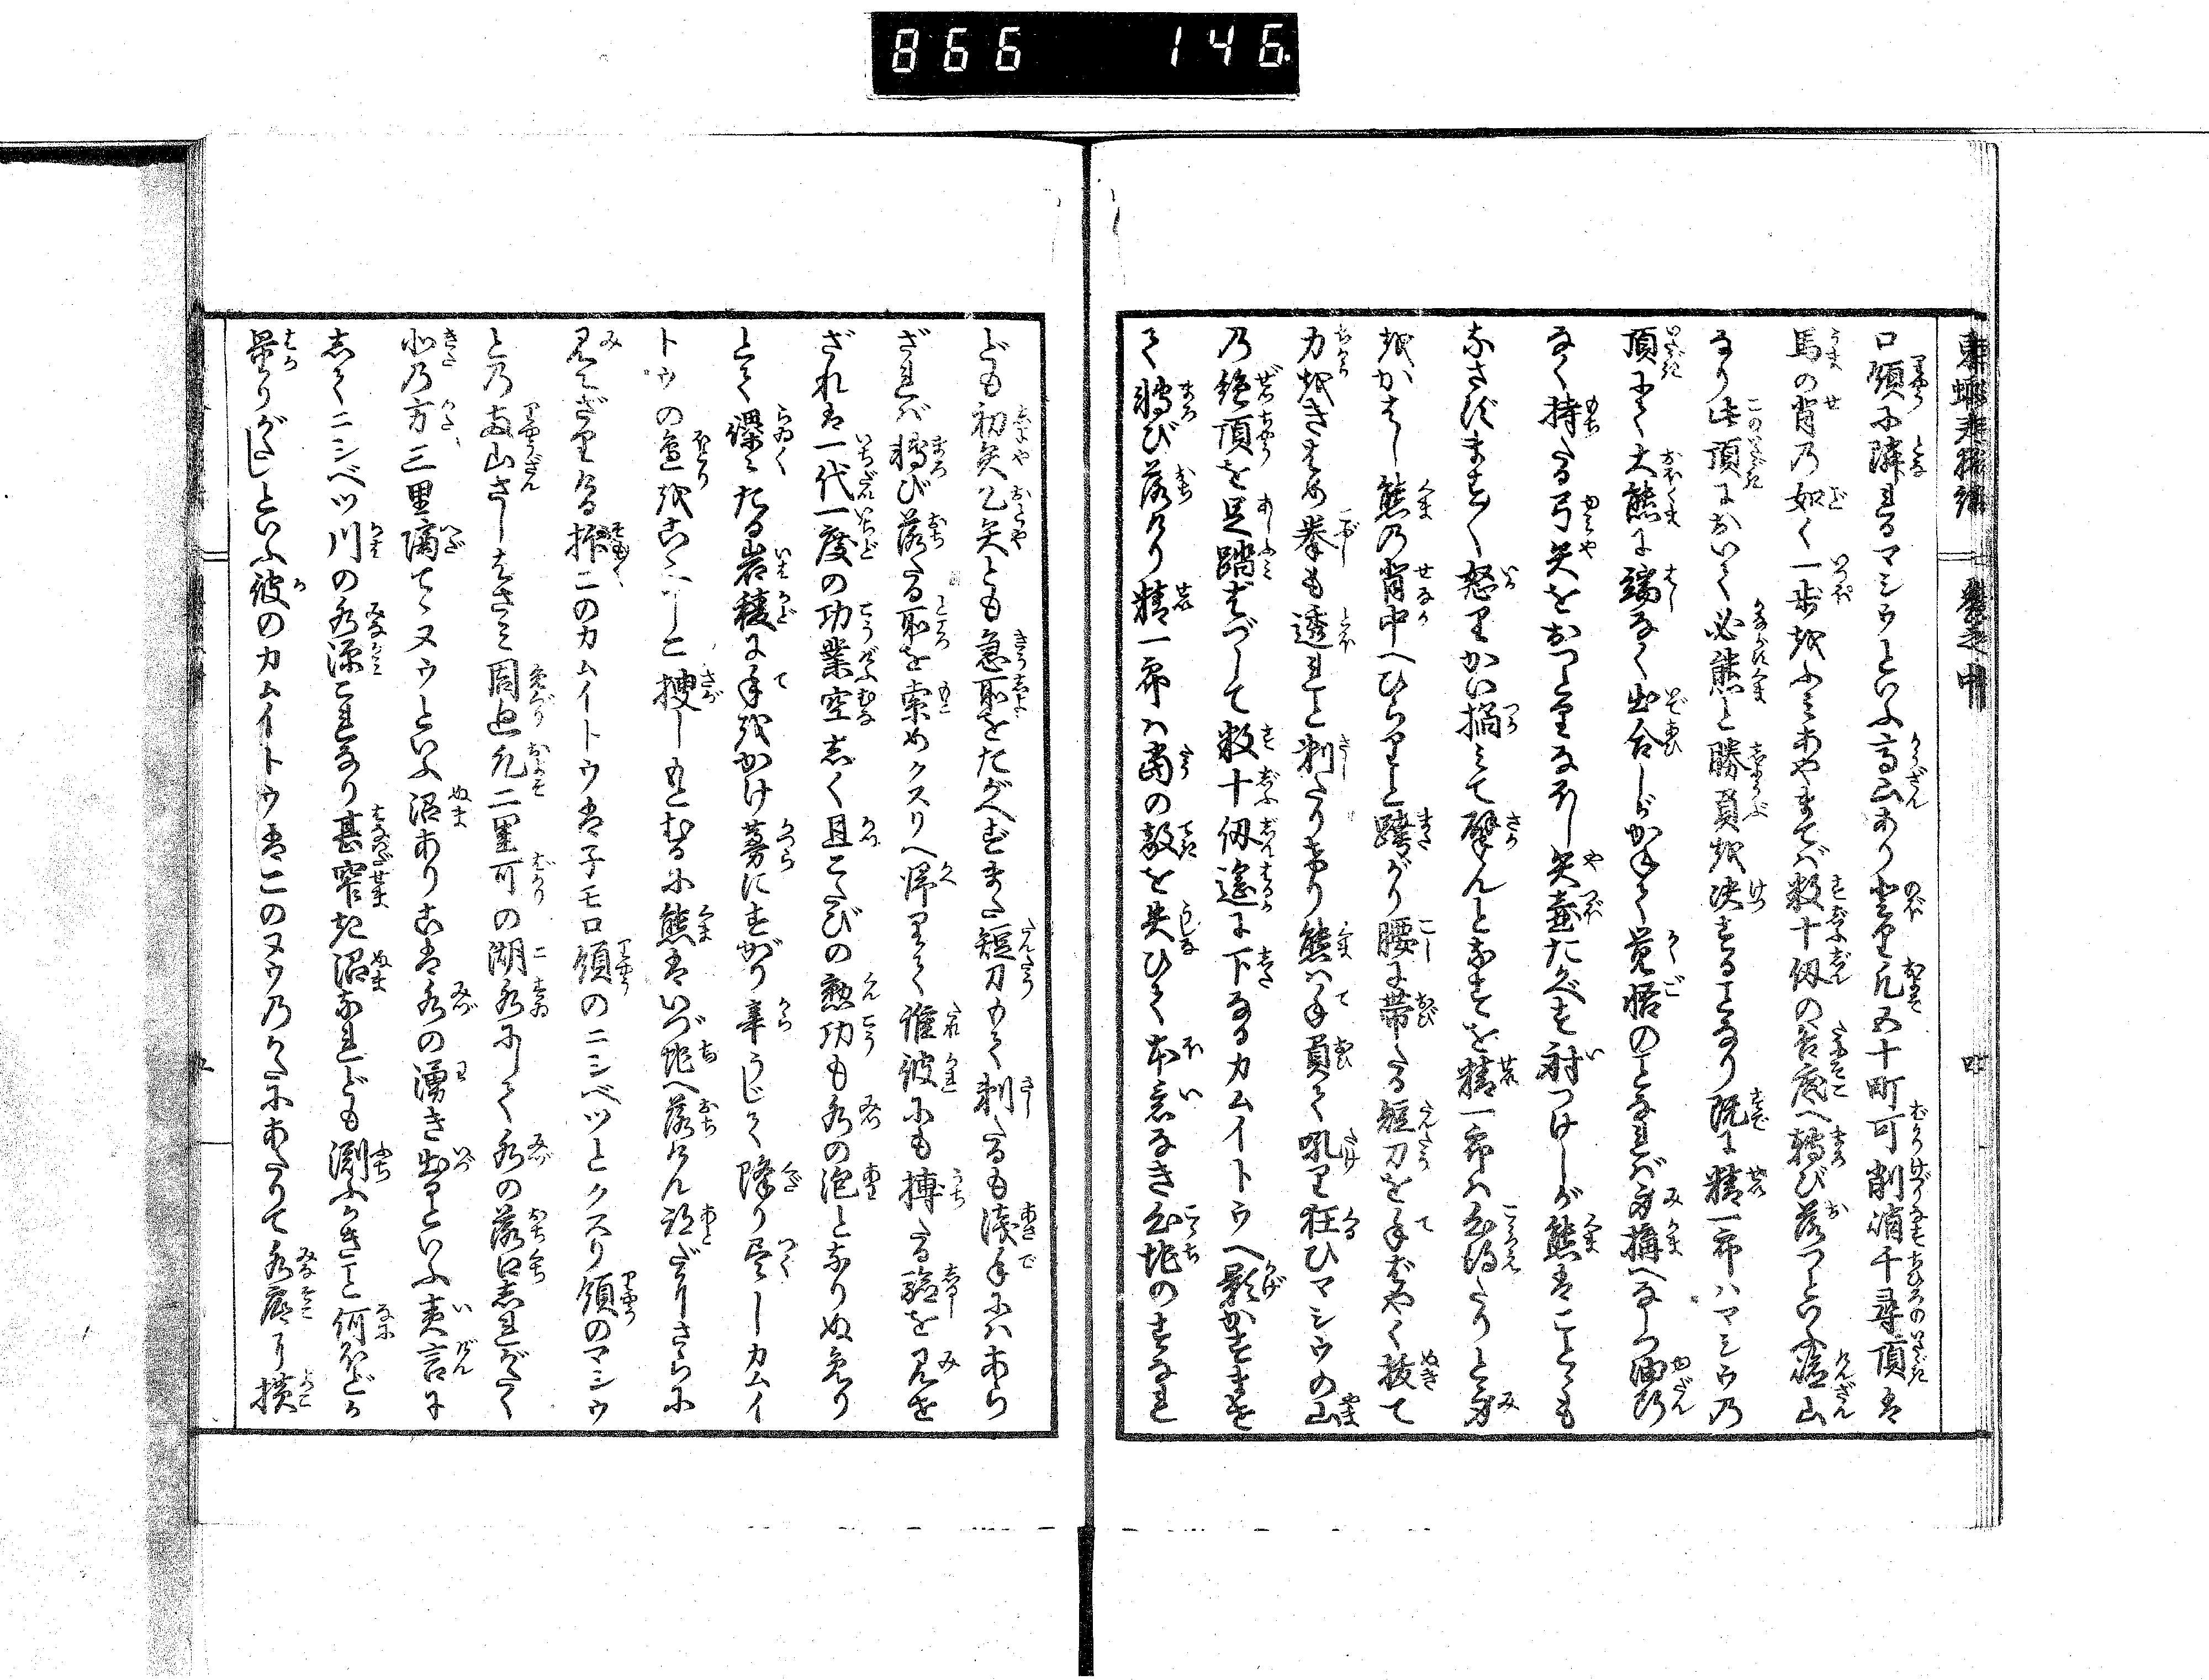 866 146
東蝦夷物語 巻之中
ロ領に隣れるマシウといふ高山あり登り凡五十町可削消千尋頂は
馬の背乃如く一歩をふミあやまてば数十仞の谷底へ轉び落つといふ嶮山
なり此頂においく必熊と勝負を決することなり既に精一郎ハマシウ乃
頂にて大熊に端なく出合しがかねて覚悟のことなれバ身構へなしつ油断
なく持たる弓矢をおつとりなほし矢壷たがへず射つけしが熊はことゝも
なさずまとく怒りかい掴ミて擘んとなすを精一郎ハ心得たりと身
をかはし熊乃背中へひらりと跨がり腰に帯たる短刀を手ばやく抜て
力をきはめ拳も透れと刺たりけり熊ハ手負て吼り狂ひマシウの山
乃絶頂を足踏はづして数十仞遙に下なるカムイトウへ影かすませ
て轉び落けり精一郎ハ當の敵を失ひて本意なき心地のすなれ
ども初矢乙矢とも急所をたがへずまた短刀もて刺たるも浅手にハあら
ざれバ轉び落たる所を索めクスリへ帰りて誰彼にも搏たる證を見せ
ざれは一代一度の功業空しく且こたびの勲功も水の泡となりぬめり
とて漂ミたる岩稜に手をかけ蔓にすがり辛うじて降り尽しカムイ
トウの邉をこゝかしこと捜しもとむるに熊はいづ地へ落けん跡だにさらに
見えざりける抑このカムイトウは子モロ領のニシベツとクスリ領のマシウ
と乃両山さしはさミ周廻凡二里可の湖水にして水の落口志れがたく
北乃方三里隔てゝヌウといふ沼ありこは水の湧き出るといふ夷言に
志てニシベツ川の水源これなり甚窄き沼なれども渕ふかきこと何ほどか
量りがたしといふ彼のカムイトウはこのヌウ乃かたにあたりて水底より横